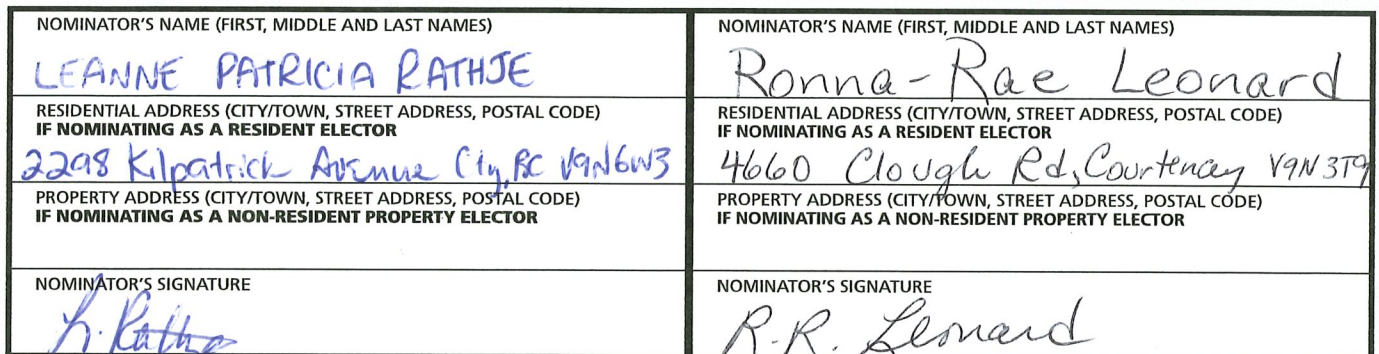 NOMINATOR'S NAME (FIRST, MIDDLE AND LAST NAMES)
LEANNE PATRICIA RATHJE
RESIDENTIAL ADDRESS (CITY/TOWN, STREET ADDRESS, POSTAL CODE)
IF NOMINATING AS A RESIDENT ELECTOR
2298 Kilpatrick Avenue Cty, BC V9N6W3
PROPERTY ADDRESS (CITY/TOWN, STREET ADDRESS, POSTAL CODE)
IF NOMINATING AS A NON-RESIDENT PROPERTY ELECTOR
NOMINATOR'S SIGNATURE
L. Rathje
NOMINATOR'S NAME (FIRST, MIDDLE AND LAST NAMES)
Ronna-Rae Leonard
RESIDENTIAL ADDRESS (CITY/TOWN, STREET ADDRESS, POSTAL CODE)
IF NOMINATING AS A RESIDENT ELECTOR
4660 Clough Rd, Courtenay V9N 3T9
PROPERTY ADDRESS (CITY/TOWN, STREET ADDRESS, POSTAL CODE)
IF NOMINATING AS A NON-RESIDENT PROPERTY ELECTOR
NOMINATOR'S SIGNATURE
R.R. Leonard